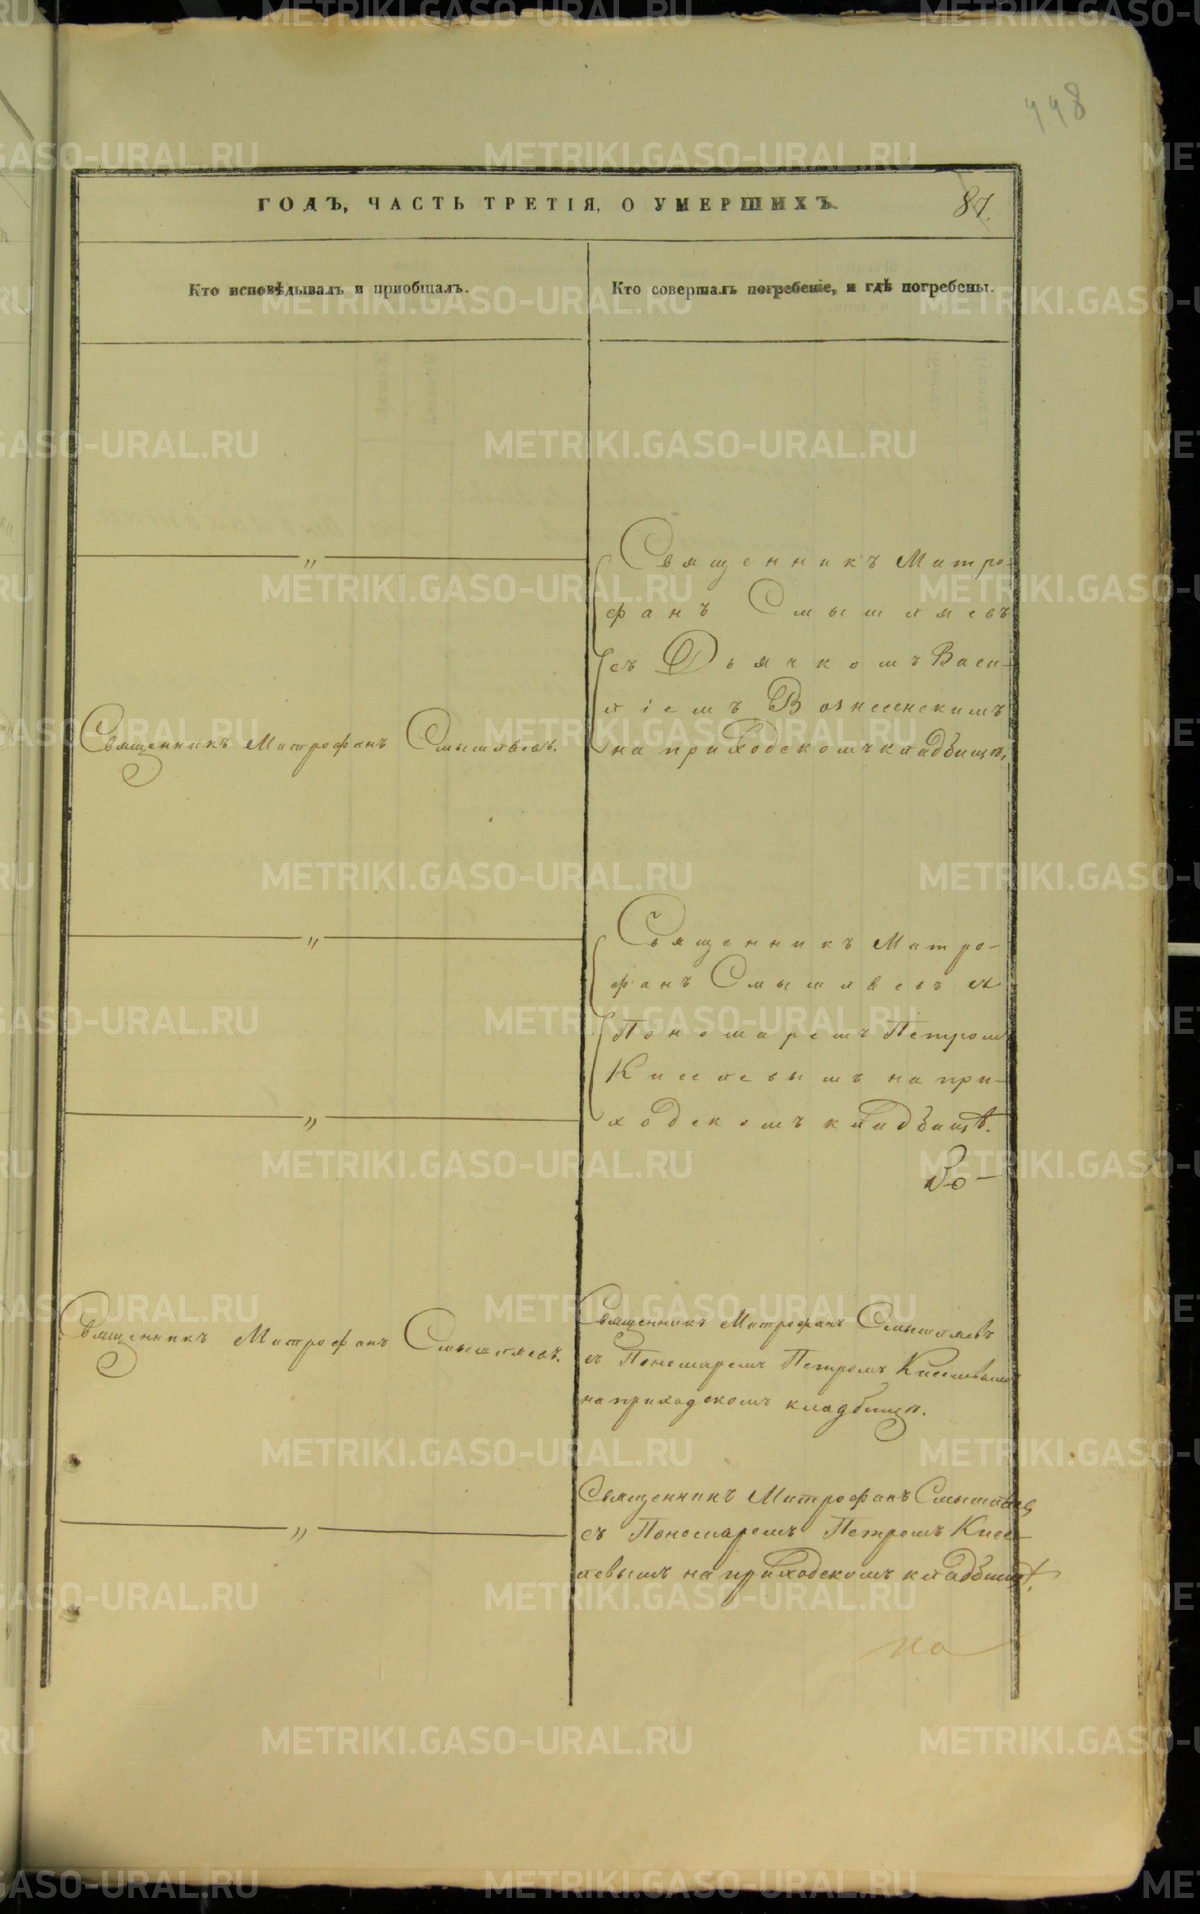 448
ГОДЪ, ЧАСТЬ ТРЕТІЯ, О УМЕРШИХЪ.
87.
Кто исповѣдывалъ и приобщалъ.
Кто совершалъ погребеніе, и гдѣ погребены.
„
Священникъ Митро-
фанъ Смышляевъ
съ Дьячкомъ Васи-
ліемъ Вознесенскимъ
на приходскомъ кладбищѣ.
Священникъ Митрофанъ Смышляевъ.
„
Священникъ Митро-
фанъ Смышляевъ съ
Пономаремъ Петромъ
Киселевымъ на при-
ходскомъ кладбищѣ.
„
Во-
Священникъ Митрофанъ Смышляевъ.
Священникъ Митрофанъ Смышляевъ
съ Пономаремъ Петромъ Киселевымъ
на приходскомъ кладбищѣ.
„
Священникъ Митрофанъ Смышляевъ
съ Пономаремъ Петромъ Кисе-
левымъ на приходскомъ кладбищѣ.
на
METRIKI.GASO-URAL.RU